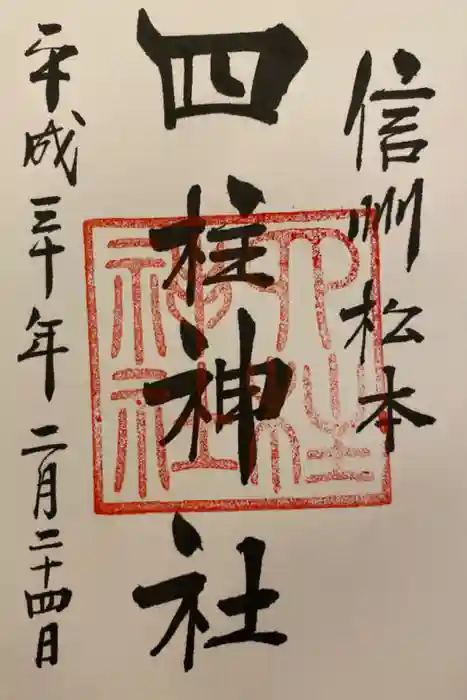 信州松本
四柱神社
平成三十年二月二十四日
四柱神社